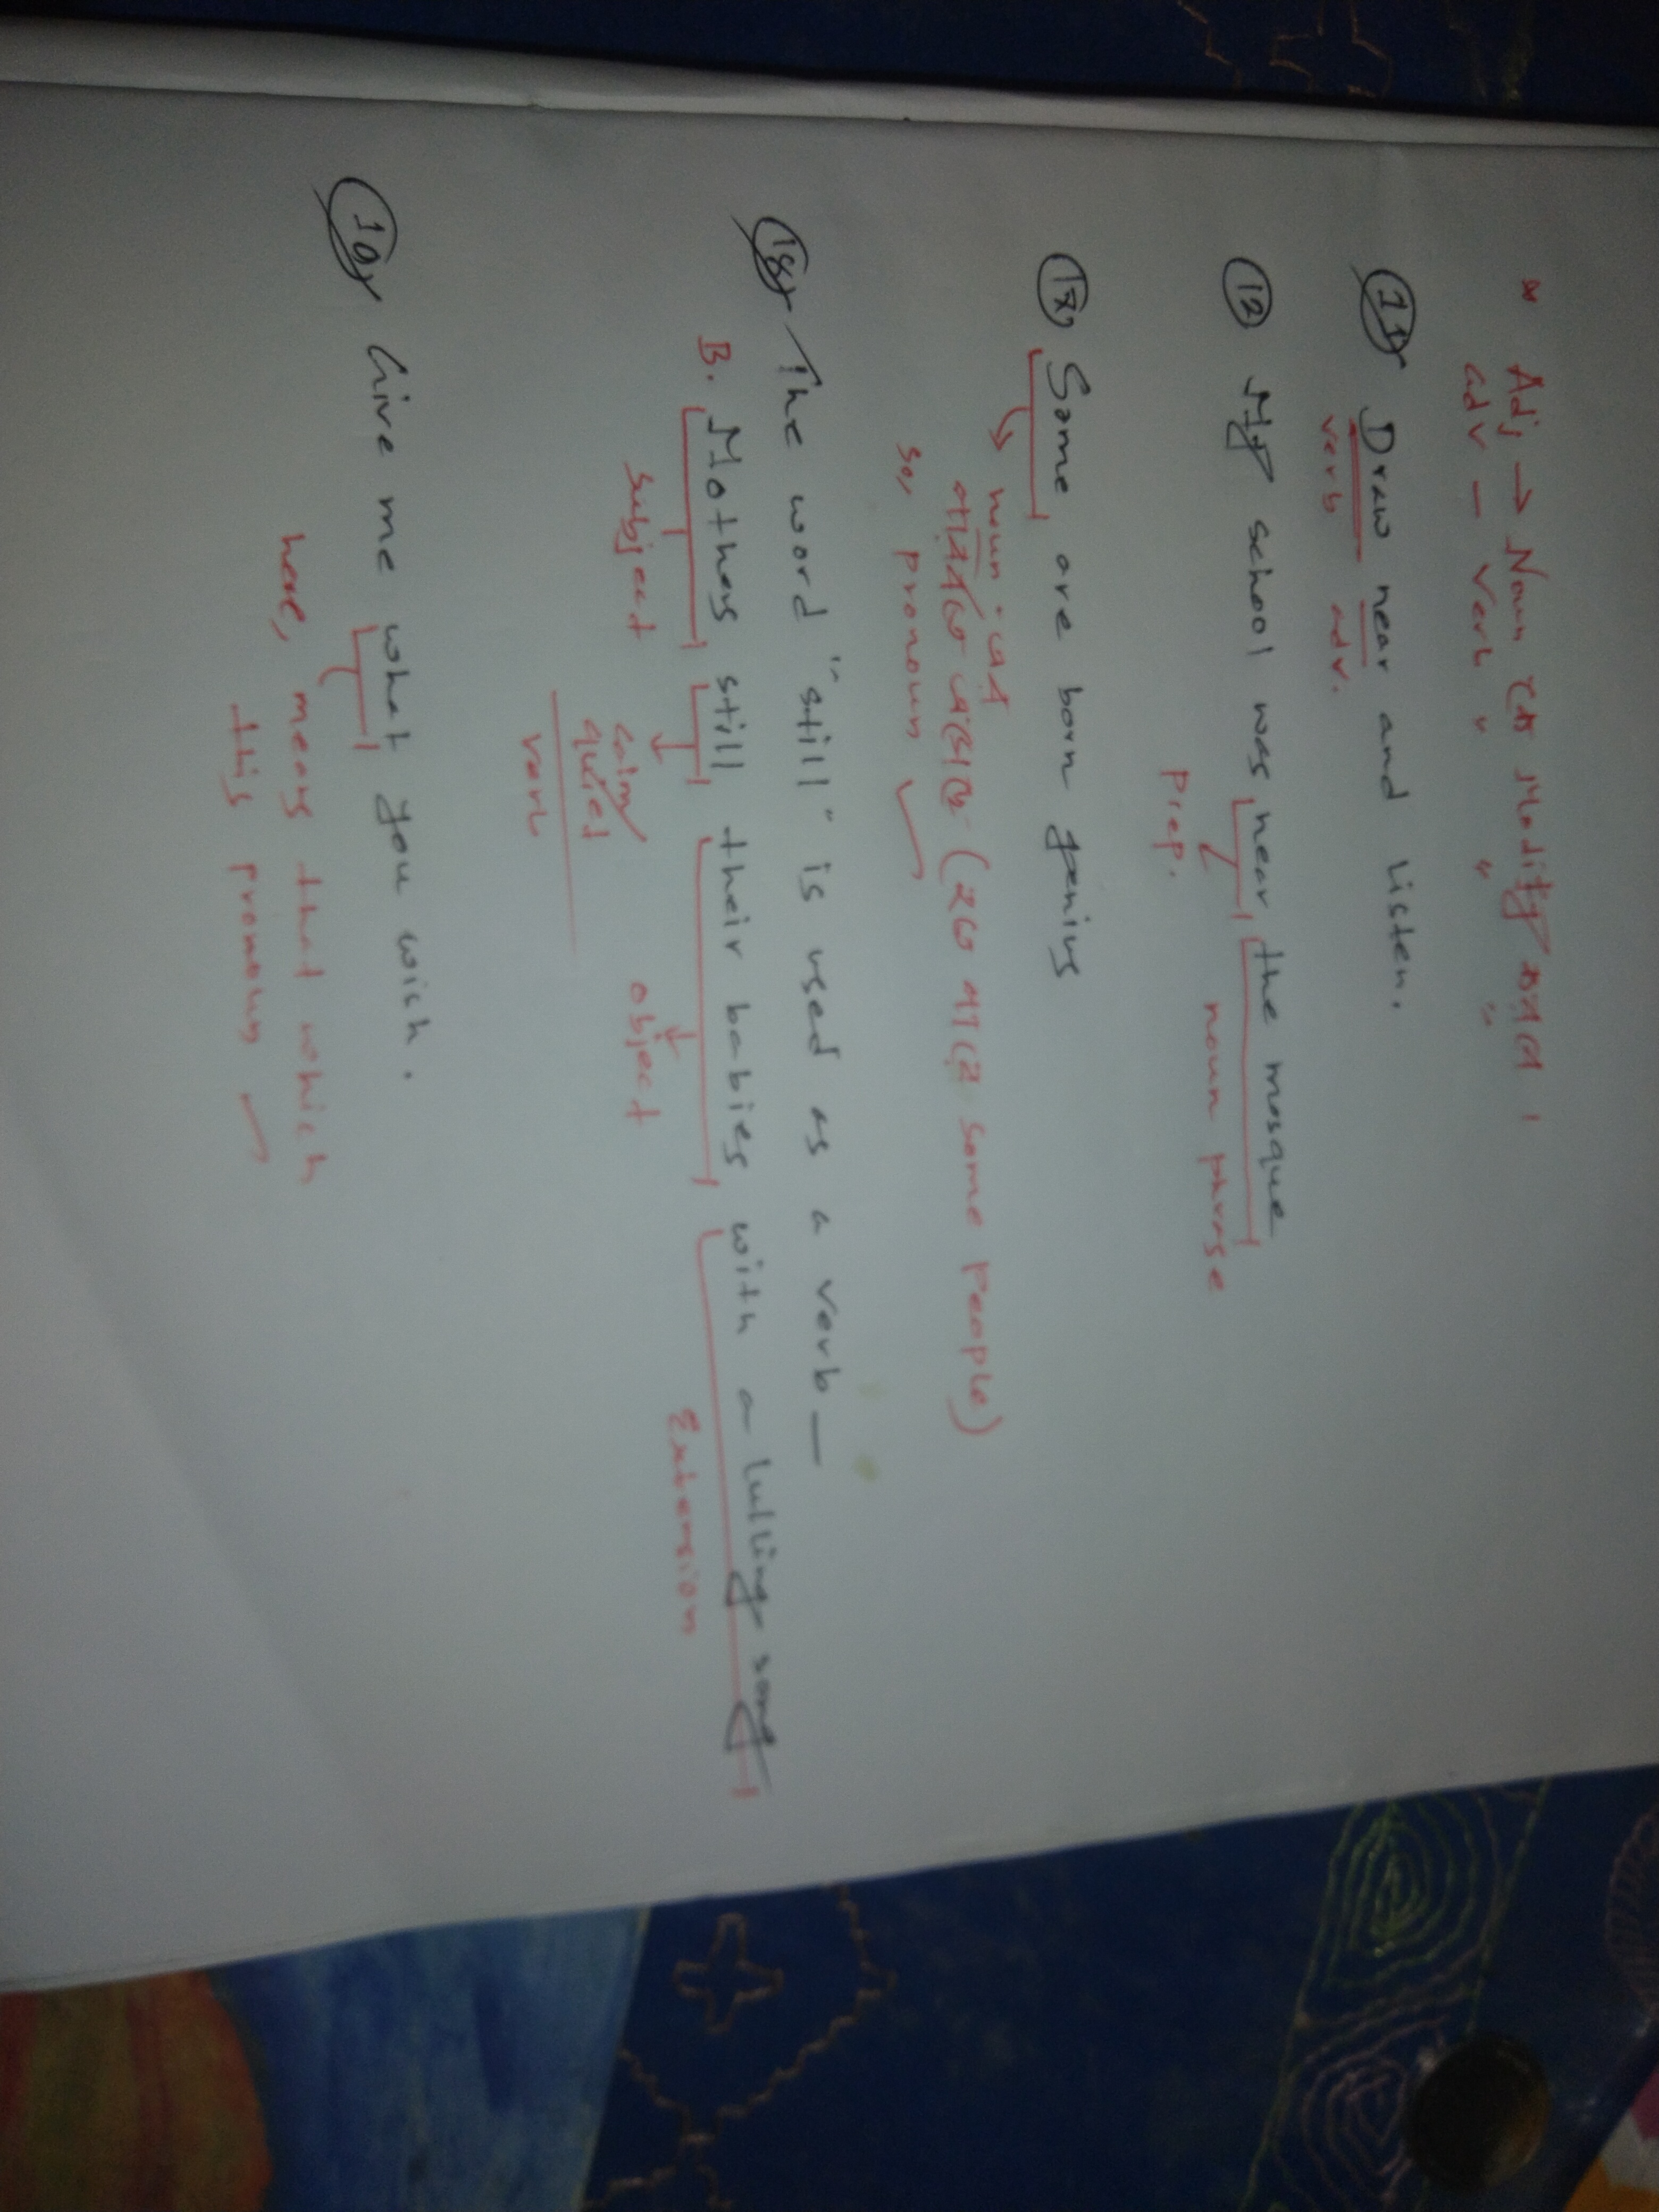 * Adj → Noun কে Modify করে।
adv — Verb " " "
11) Draw near and listen.
verb adv.
12) My school was near the mosque
Prep. noun phrase
17) Some are born genius
noun এর
পরিবর্তে (হতে পারে some people)
so, pronoun
18) The word "still" is used as a verb —
B. Mothers still their babies with a lulling song
subject calm/ object Extension
quiet
verb
19) Give me what you wish.
here, means that which
this pronoun